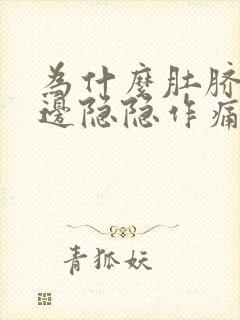 为什麼肚脐
邊隐隐作痛
青狐妖